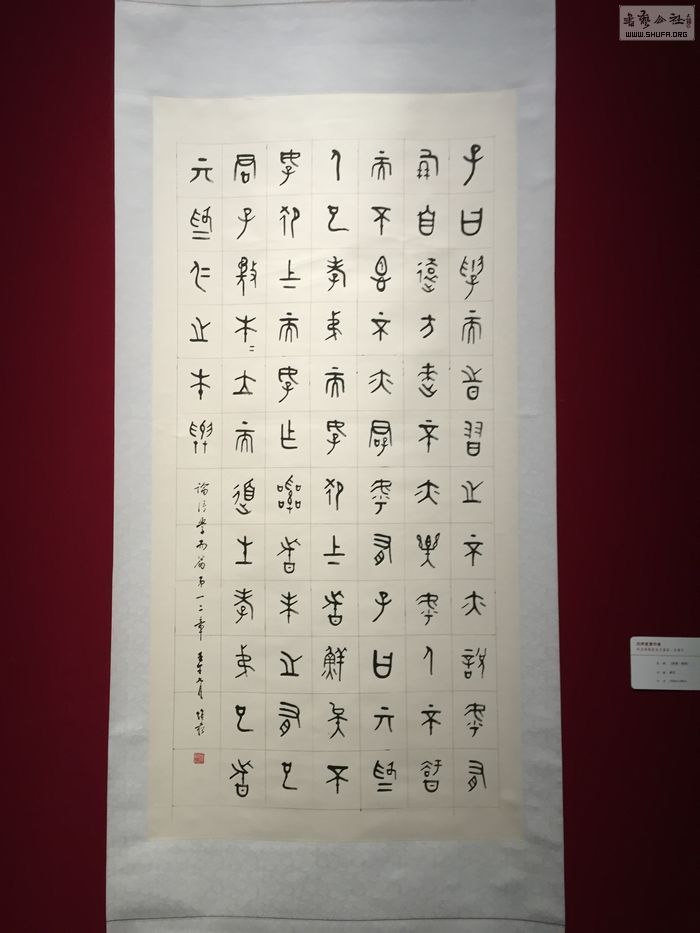 子曰學而時習之不亦說乎有
朋自遠方來不亦樂乎人不知
而不慍不亦君子乎有子曰其為
人也孝弟而好犯上者鮮矣不
好犯上而好作亂者未之有也
君子務本=立而道生孝弟也者
其為仁之本與
論語學而篇第一二章
书艺公社
WWW.SHUFA.ORG